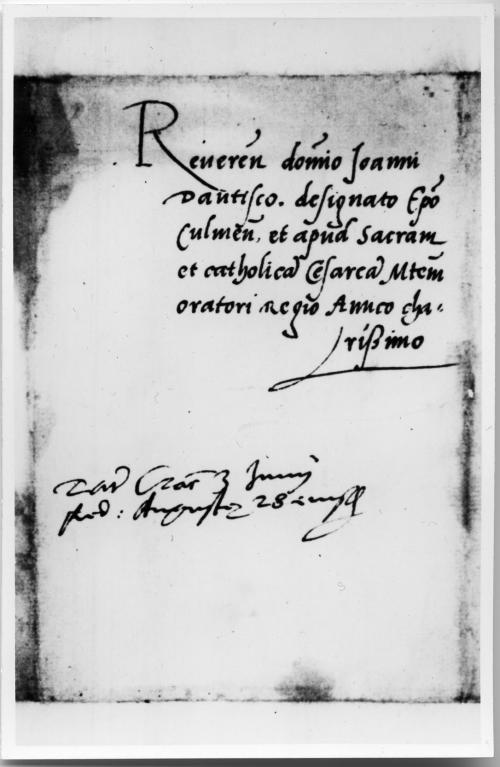 Reveren̄ dom̄io Joanni
Dantisco. designato Ep̄o
Culmen̄. et apud Sacram
et catholicā Cęsareā Mtem
oratori Regio Amico cha-
rißimo
Dat̄ Crac̄ 3 Junij
Red: Auguste 28 eiusdē